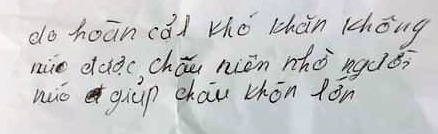 do hoàn cảl khó khăn không
núo được chấu niên nhờ người
núo giúp chấu khôn lớn